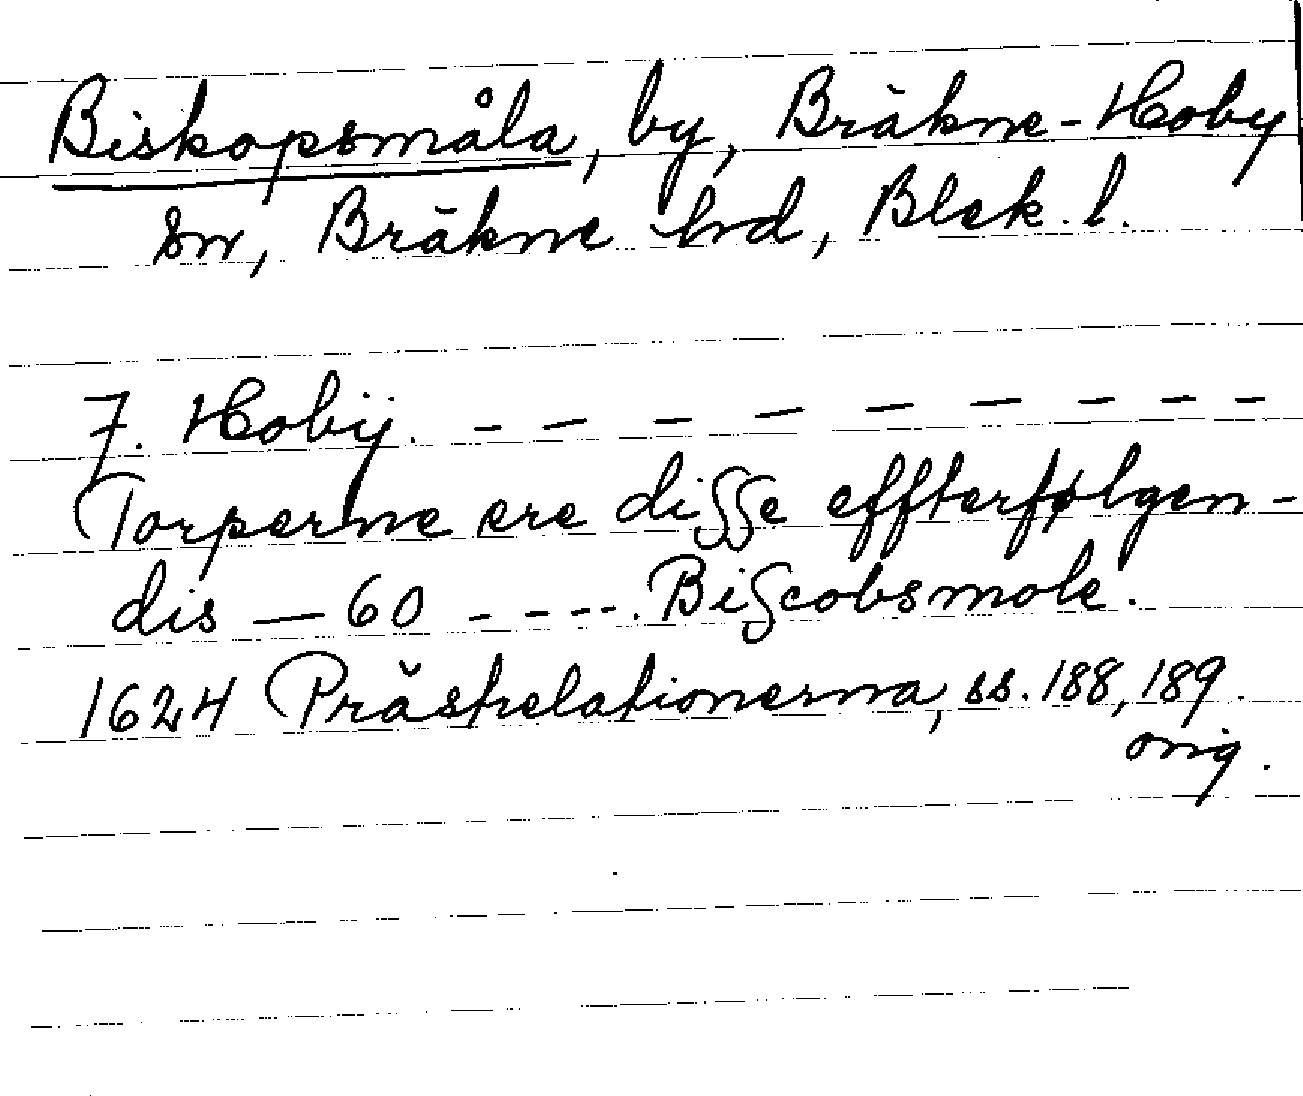 Biskopsmåla, by, Bräkne-Hoby
sn, Bräkne hd, Blek. l.
7. Hobÿ. - - - - - - - - -
Torperne ere diſſe effterfølgen-
dis — 60 - - - - . Biſcobsmole.
1624 Prästrelationerna, ss. 188, 189.
orig.